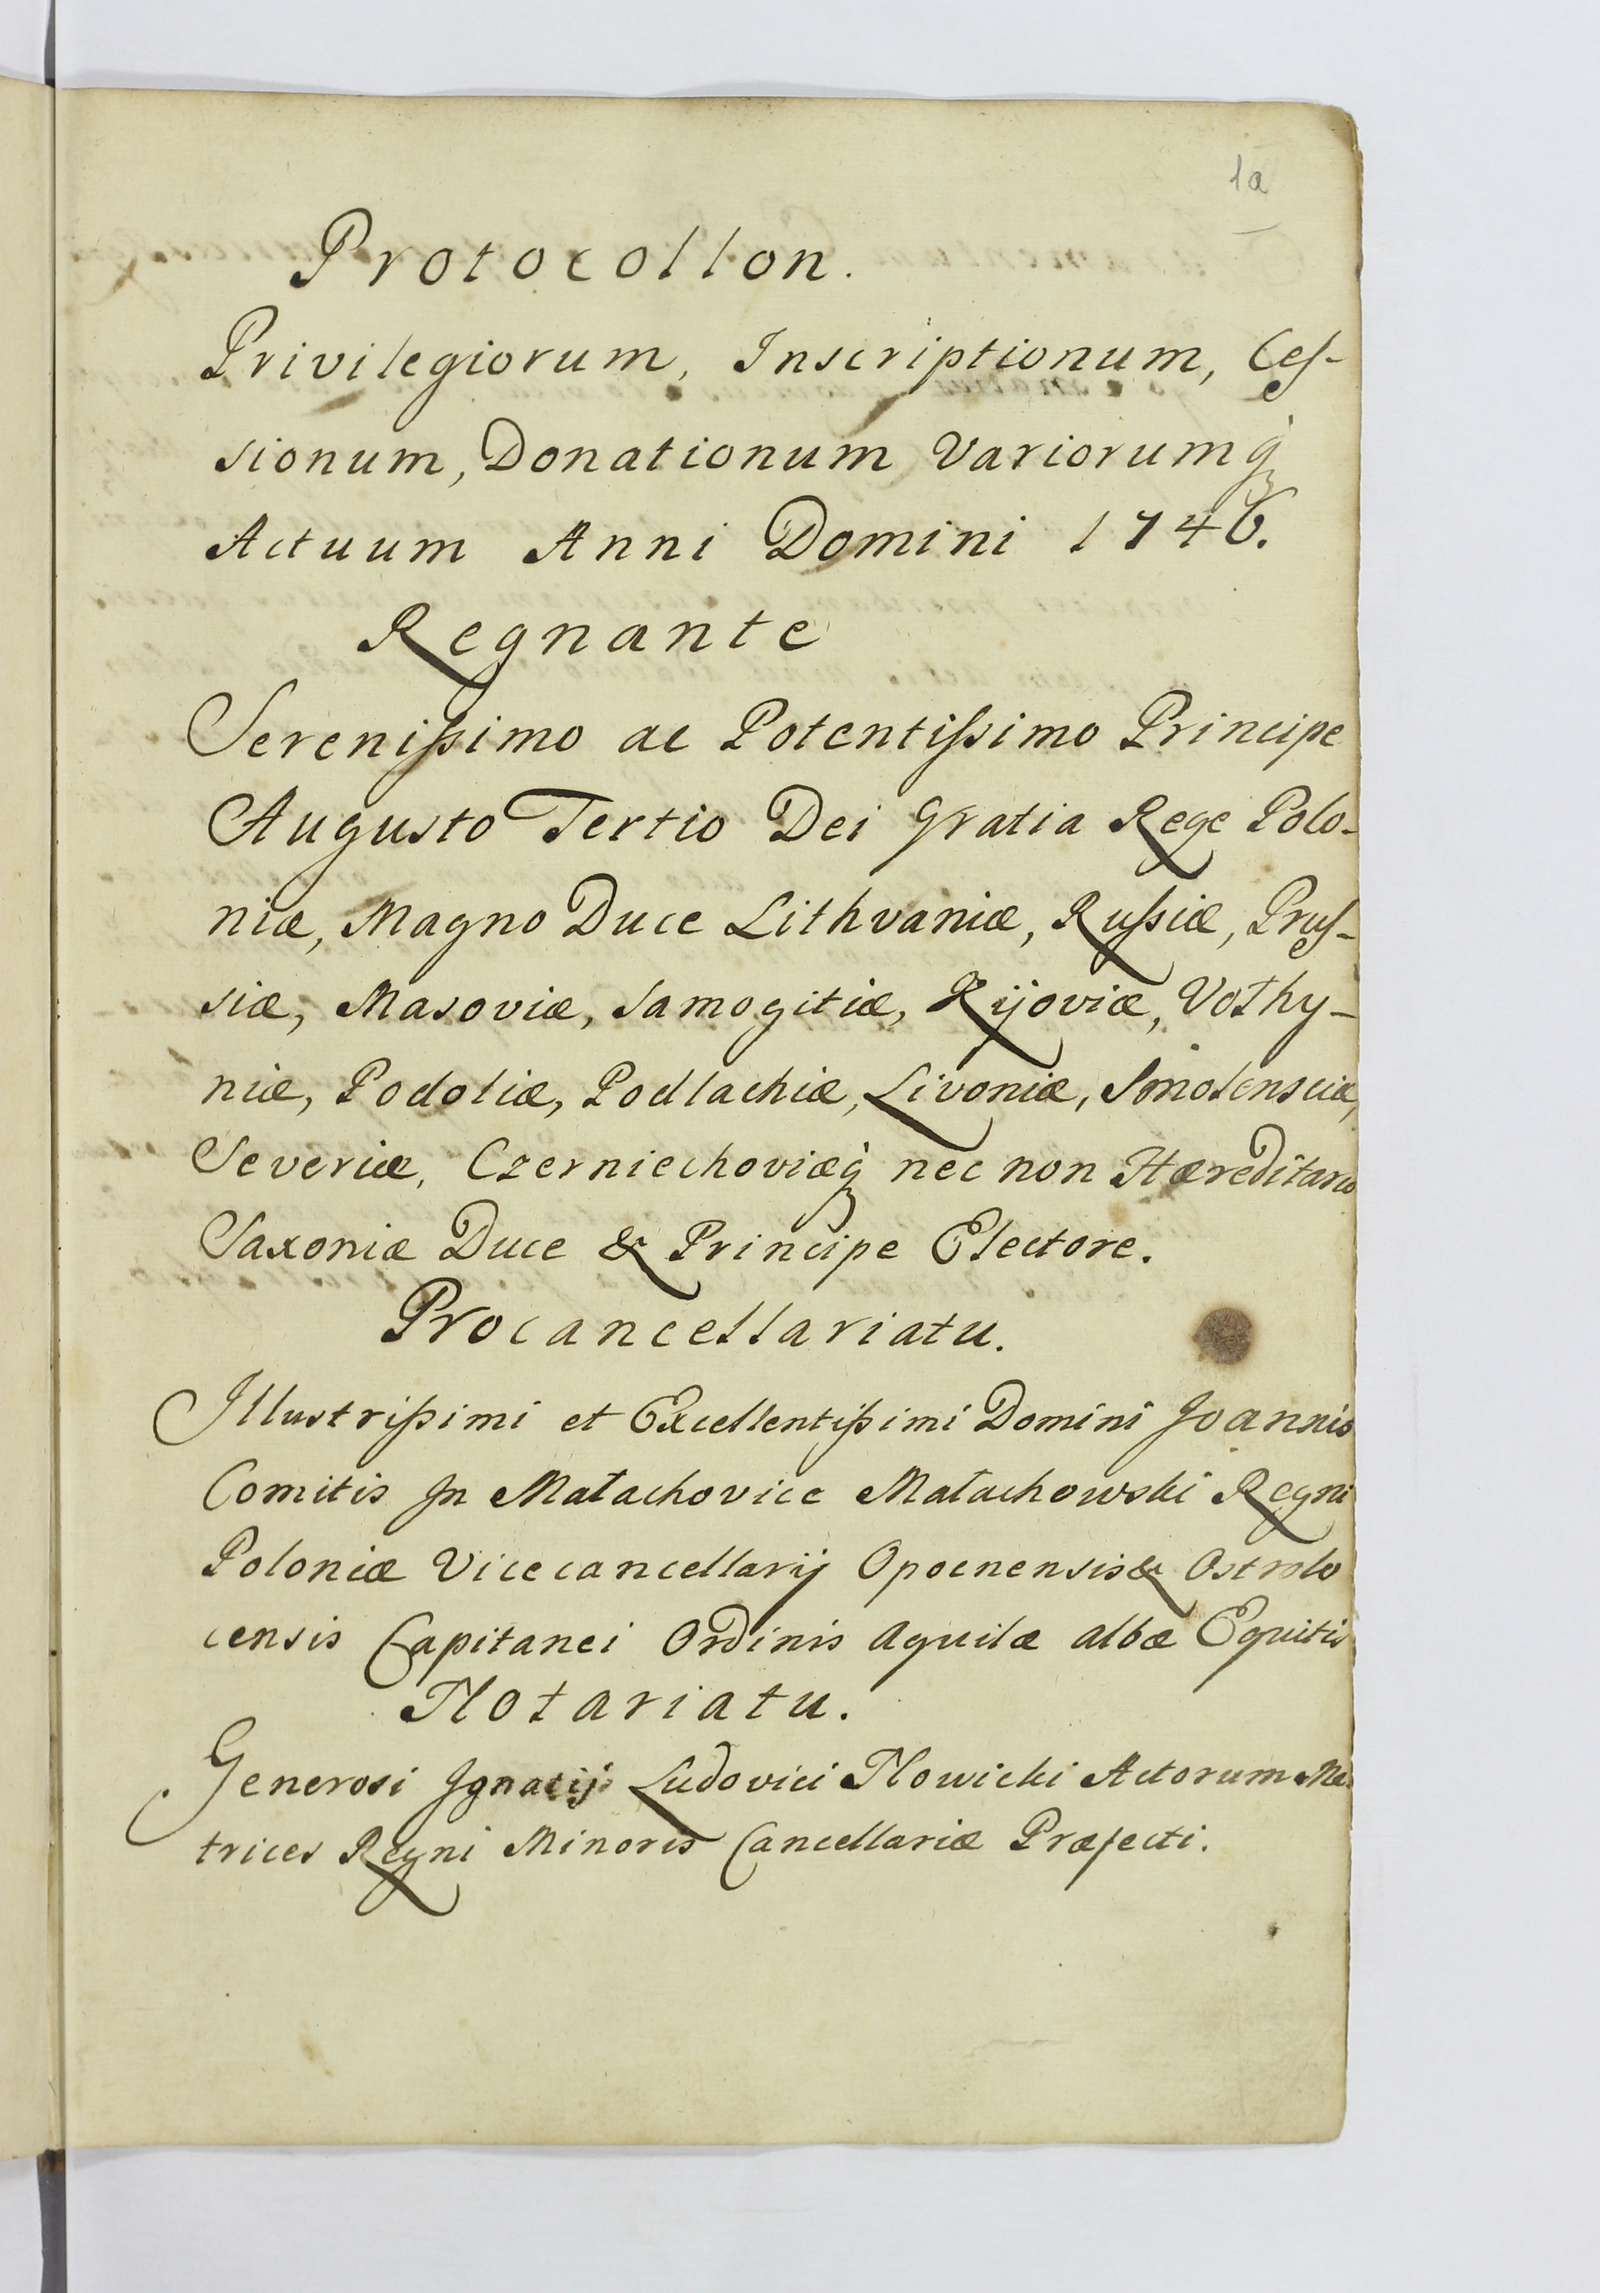 1a
Protocollon.
Privilegiorum, Inscriptionum, Ces-
sionum, Donationum Variorumq́;
Actuum Anni Domini 1746.
Regnante
Serenißimo ac Potentißimo Principe
Augusto Tertio Dei Gratia Rege Polo-
niæ, Magno Duce Lithvaniæ, Rußiæ, Prus-
siæ, Masoviæ, Samogitiæ, Kijoviæ, Vołhy-
niæ, Podoliæ, Podlachiæ, Livoniæ, Smolensciæ,
Severiæ, Czerniechoviæq́; nec non Hæreditario
Saxoniæ Duce & Principe Electore.
Procancellariatu.
Illustrißimi et Excellentißimi Domini Joannis
Comitis In Małachovice Małachowski Regni
Poloniæ Vicecancellarij Opocnensis & Ostrolo
censis Capitanei Ordinis Aquilæ albæ Equitis
Notariatu.
Generosi Ignatij Ludovici Nowicki Actorum Me
trices Regni Minoris Cancellariæ Præfecti.